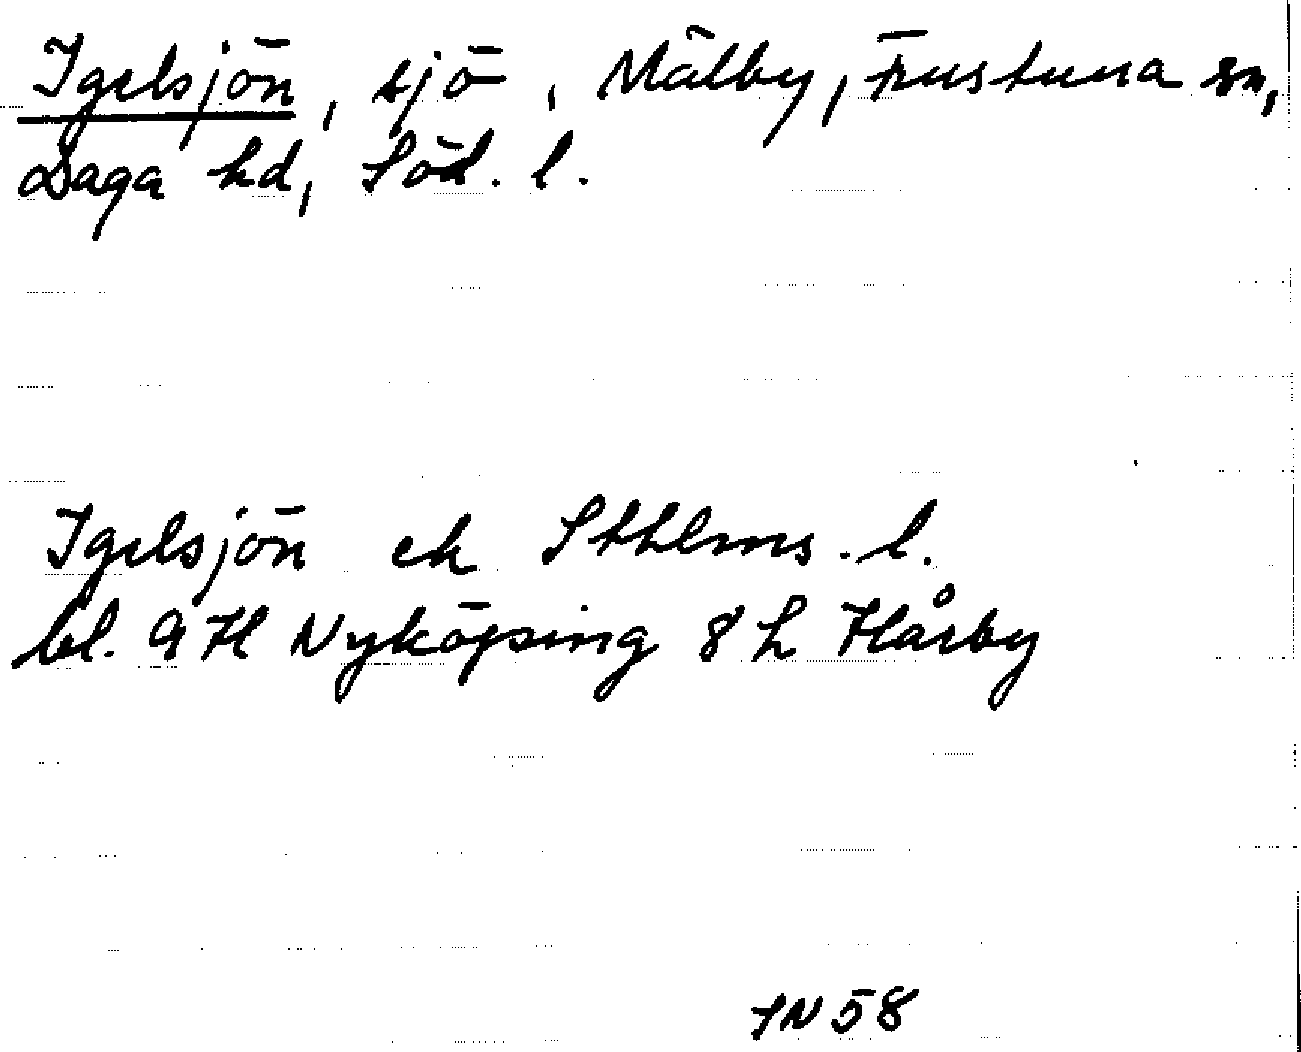 Igelsjön, sjö, Mälby, Frustuna sn,
Daga hd, Söd. l.
Igelsjön ek Sthlms. l.
bl. 9 H Nyköping 8 h Hårby
IN 58